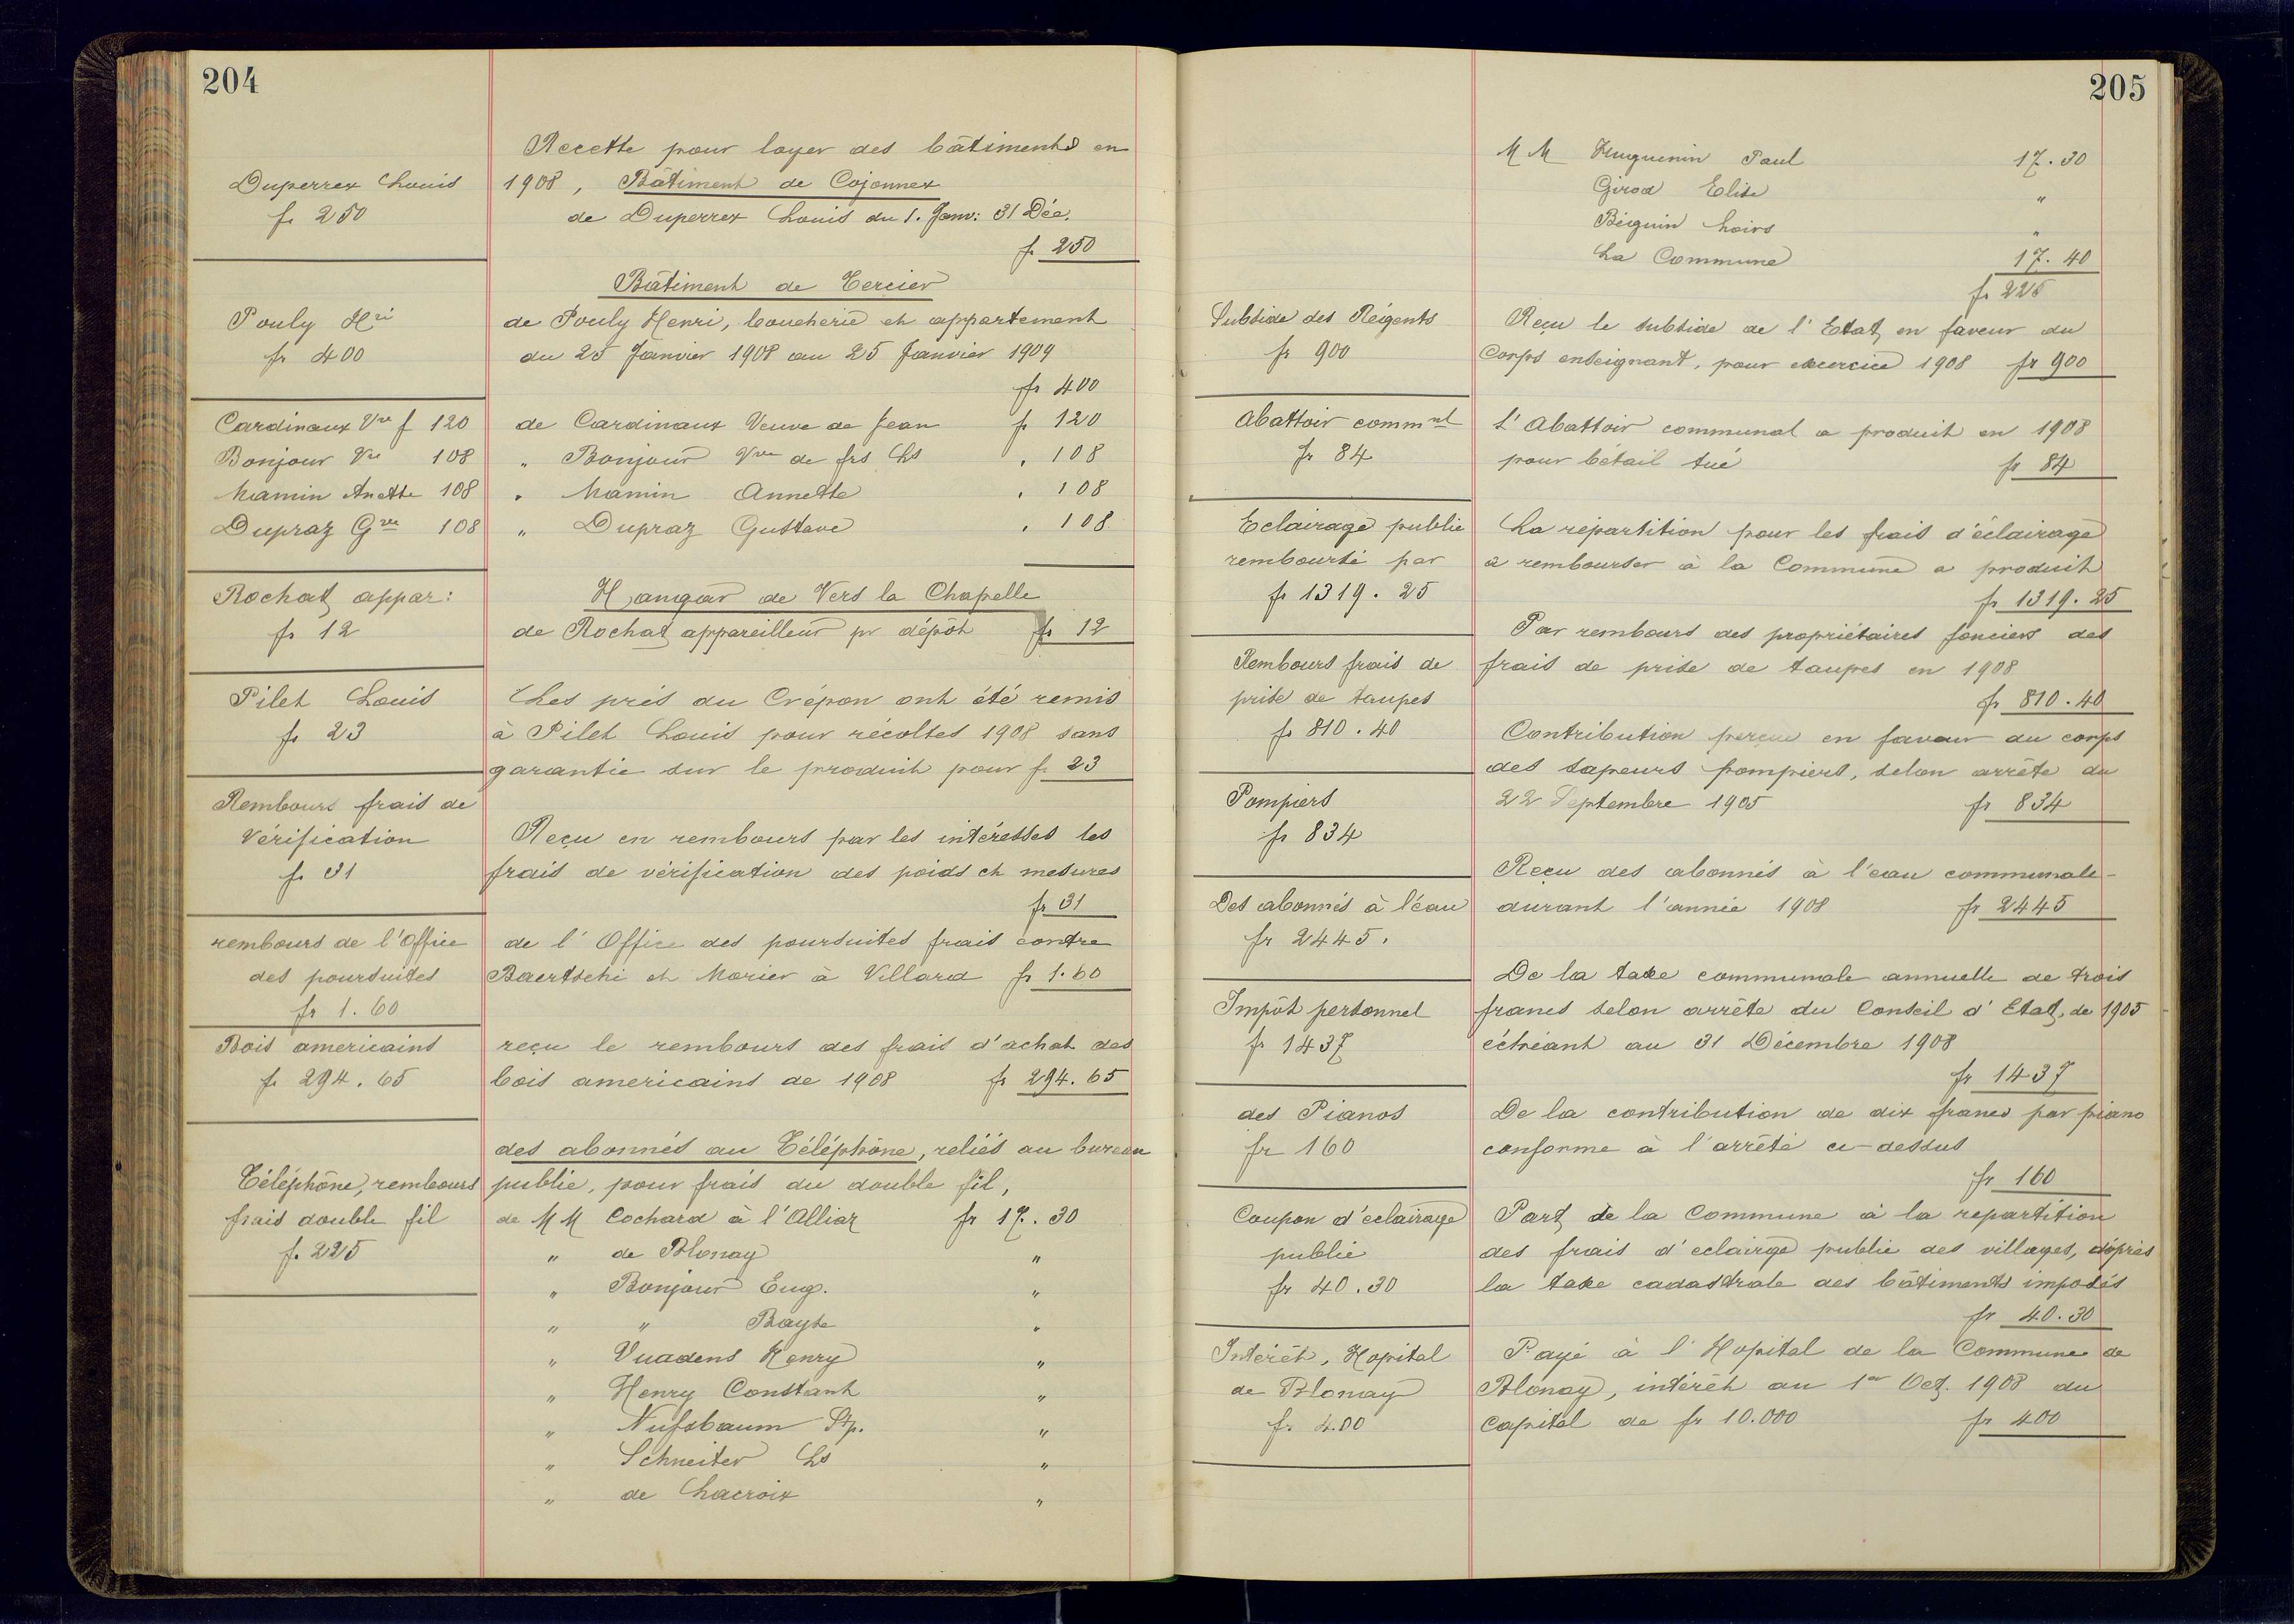 204
Recette pour loyer des bâtiments en
Duperrex Louis
fr 250
1908, Bâtiment de Cojonnex
de Duperrex Louis du 1. Janv: 31 Déc.
fr 250
Bâtiment de Tercier
Pouly Hri
fr 400
de Pouly Henri, boucherie et appartement
du 25 Janvier 1908 au 25 Janvier 1909
fr 400
Cardinaux Vve f 120
Bonjour Vve 108
Mamin Anette 108
Dupraz Gve 108
de Cardinaux Veuve de Jean fr 120
" Bonjour Vve de frs Ls " 108
" Mamin Annette " 108
" Dupraz Gustave " 108
Rochat appar:
fr 12
Hangar de Vers la Chapelle
de Rochat appareilleur pr dépôt fr 12
Pilet Louis
fr 23
Les prés du Crépon ont été remis
à Pilet Louis pour récoltes 1908 sans
garantie sur le produit pour fr 23
Rembours frais de
Vérification
fr 31
Reçu en rembours par les intéressés les
frais de vérification des poids et mesures
fr 31
rembours de l'Office
des poursuites
fr 1.60
de l'Office des poursuites frais contre
Baertschi et Morier à Villard fr 1.60
Bois americains
fr 294.65
reçu le rembours des frais d'achat des
bois americains de 1908 fr 294.65
Téléphône, rembours
frais double fil
fr 225
des abonnés au Téléphône, reliés au bureau
public, pour frais du double fil,
de MM Cochard à l'Alliaz fr 17.30
" de Blonay "
" Bonjour Eug. "
" " Bayse "
" Vuadens Henry "
" Henry Constant "
" Nufsbaum Stp. "
" Schneiter Ls "
" de Lacroix "
205
MM Huguenin Paul 17.30
Girod Elise "
Béguin hoirs "
La Commune 17.40
fr 225
Subside des Régents
fr 900
Reçu le subside de l'Etat, en faveur du
Corps enseignant, pour exercice 1908 fr 900
Abattoir commnl
fr 84
L'Abattoir communal a produit en 1908
pour bétail tué fr 84
Eclairage public
remboursé par
fr 1319.25
La répartition pour les frais d'éclairage
à rembourser à la Commune a produit
fr 1319.25
Rembours frais de
prise de taupes
fr 810.40
Par rembours des propriétaires fonciers des
frais de prise de taupes en 1908
fr 810.40
Pompiers
fr 834
Contribution perçue en faveur du corps
des sapeurs pompiers, selon arrête du
22 Septembre 1905 fr 834
Des abonnés à l'eau
fr 2445.
Reçu des abonnés à l'eau communale
durant l'année 1908 fr 2445
Impôt personnel
fr 1437
De la taxe communale annuelle de trois
francs selon arrête du Conseil d'Etat, de 1905
échéant au 31 Décembre 1908
fr 1437
des Pianos
fr 160
De la contribution de dix francs par piano
conforme à l'arrêté ci-dessus
fr 160
Coupon d'eclairage
public
fr 40.30
Part de la Commune à la repartition
des frais d'eclairge public des villages, d'après
la taxe cadastrale des bâtiments imposés
fr 40.30
Intérêt, Hopital
de Blonay
fr 400
Payé à l'Hopital de la Commune de
Blonay, intérêt au 1er Oct. 1908 du
capital de fr 10.000 fr 400